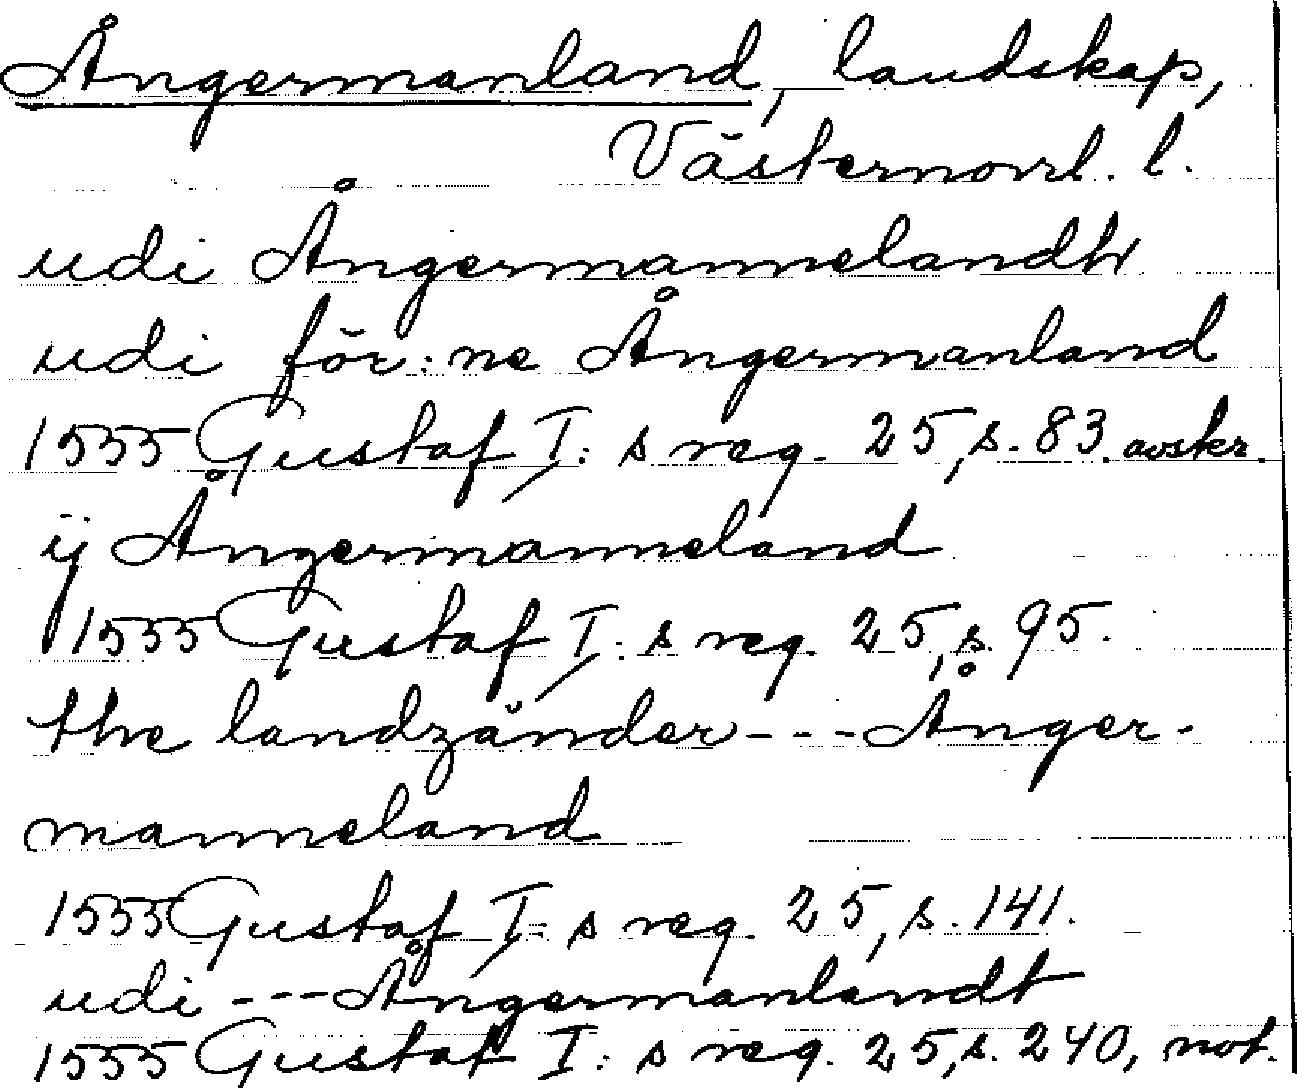 Ångermanland, landskap,
Västernorrl. l.
udi Ångermannelandh
udi för:ne Ångermanland
1555 Gustaf I:s reg. 25, s. 83. avskr.
ij Ångermanneland
1555 Gustaf I:s reg. 25, s. 95.
the landzänder --- Ånger-
manneland
1555 Gustaf I:s reg. 25, s. 141.
udi --- Ångermanlandt
1555 Gustaf I:s reg. 25, s. 240, not.